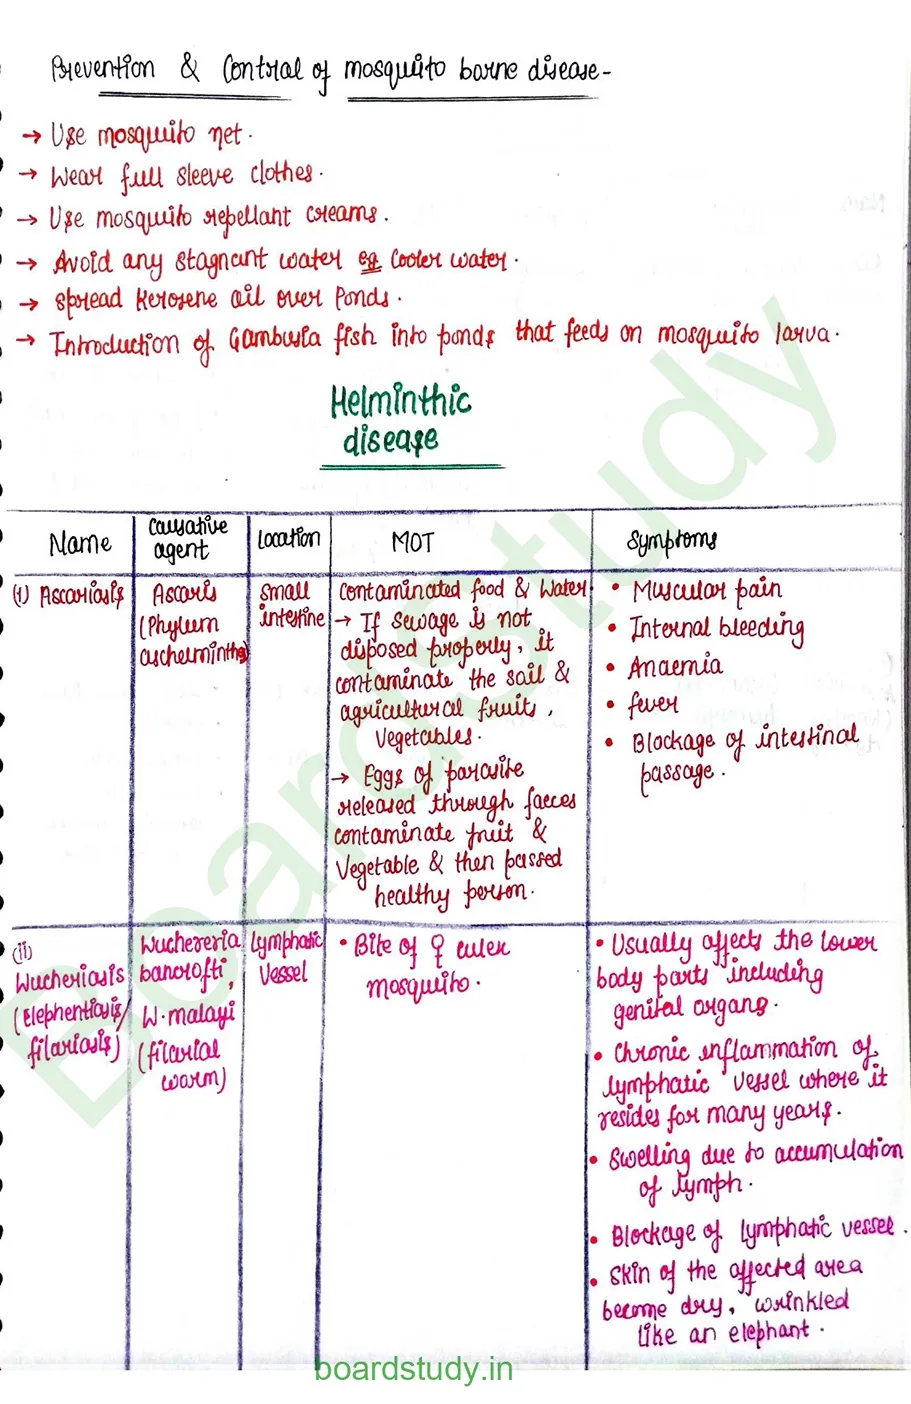 Prevention & Control of mosquito borne disease-
→ Use mosquito net.
→ Wear full sleeve clothes.
→ Use mosquito repellant creams.
→ Avoid any stagnant water eg. Cooler water.
→ Spread Kerosene oil over Ponds.
→ Introduction of Gambusia fish into ponds that feeds on mosquito larva.
Helminthic
disease
Name
Causative
agent
Location
MOT
Symptoms
(i) Ascariasis
Ascaris
(Phylum
aschelminthes)
Small
intestine
Contaminated food & Water
→ If sewage is not
disposed properly, it
contaminate the soil &
agricultural fruits,
Vegetables.
→ Eggs of parasite
released through faeces
contaminate fruit &
Vegetable & then passed
healthy person.
• Muscular pain
• Internal bleeding
• Anaemia
• fever
• Blockage of intestinal
passage.
(ii)
Wucheriasis
(Elephentiasis/
filariasis)
Wuchereria
bancrofti,
W. malayi
(filarial
worm)
Lymphatic
Vessel
• Bite of ♀ culex
mosquito.
• Usually affects the lower
body parts including
genital organs.
• Chronic inflammation of
lymphatic vessel where it
resides for many years.
• Swelling due to accumulation
of lymph.
• Blockage of lymphatic vessel.
• Skin of the affected area
become dry, wrinkled
like an elephant.
BoardStudy
boardstudy.in